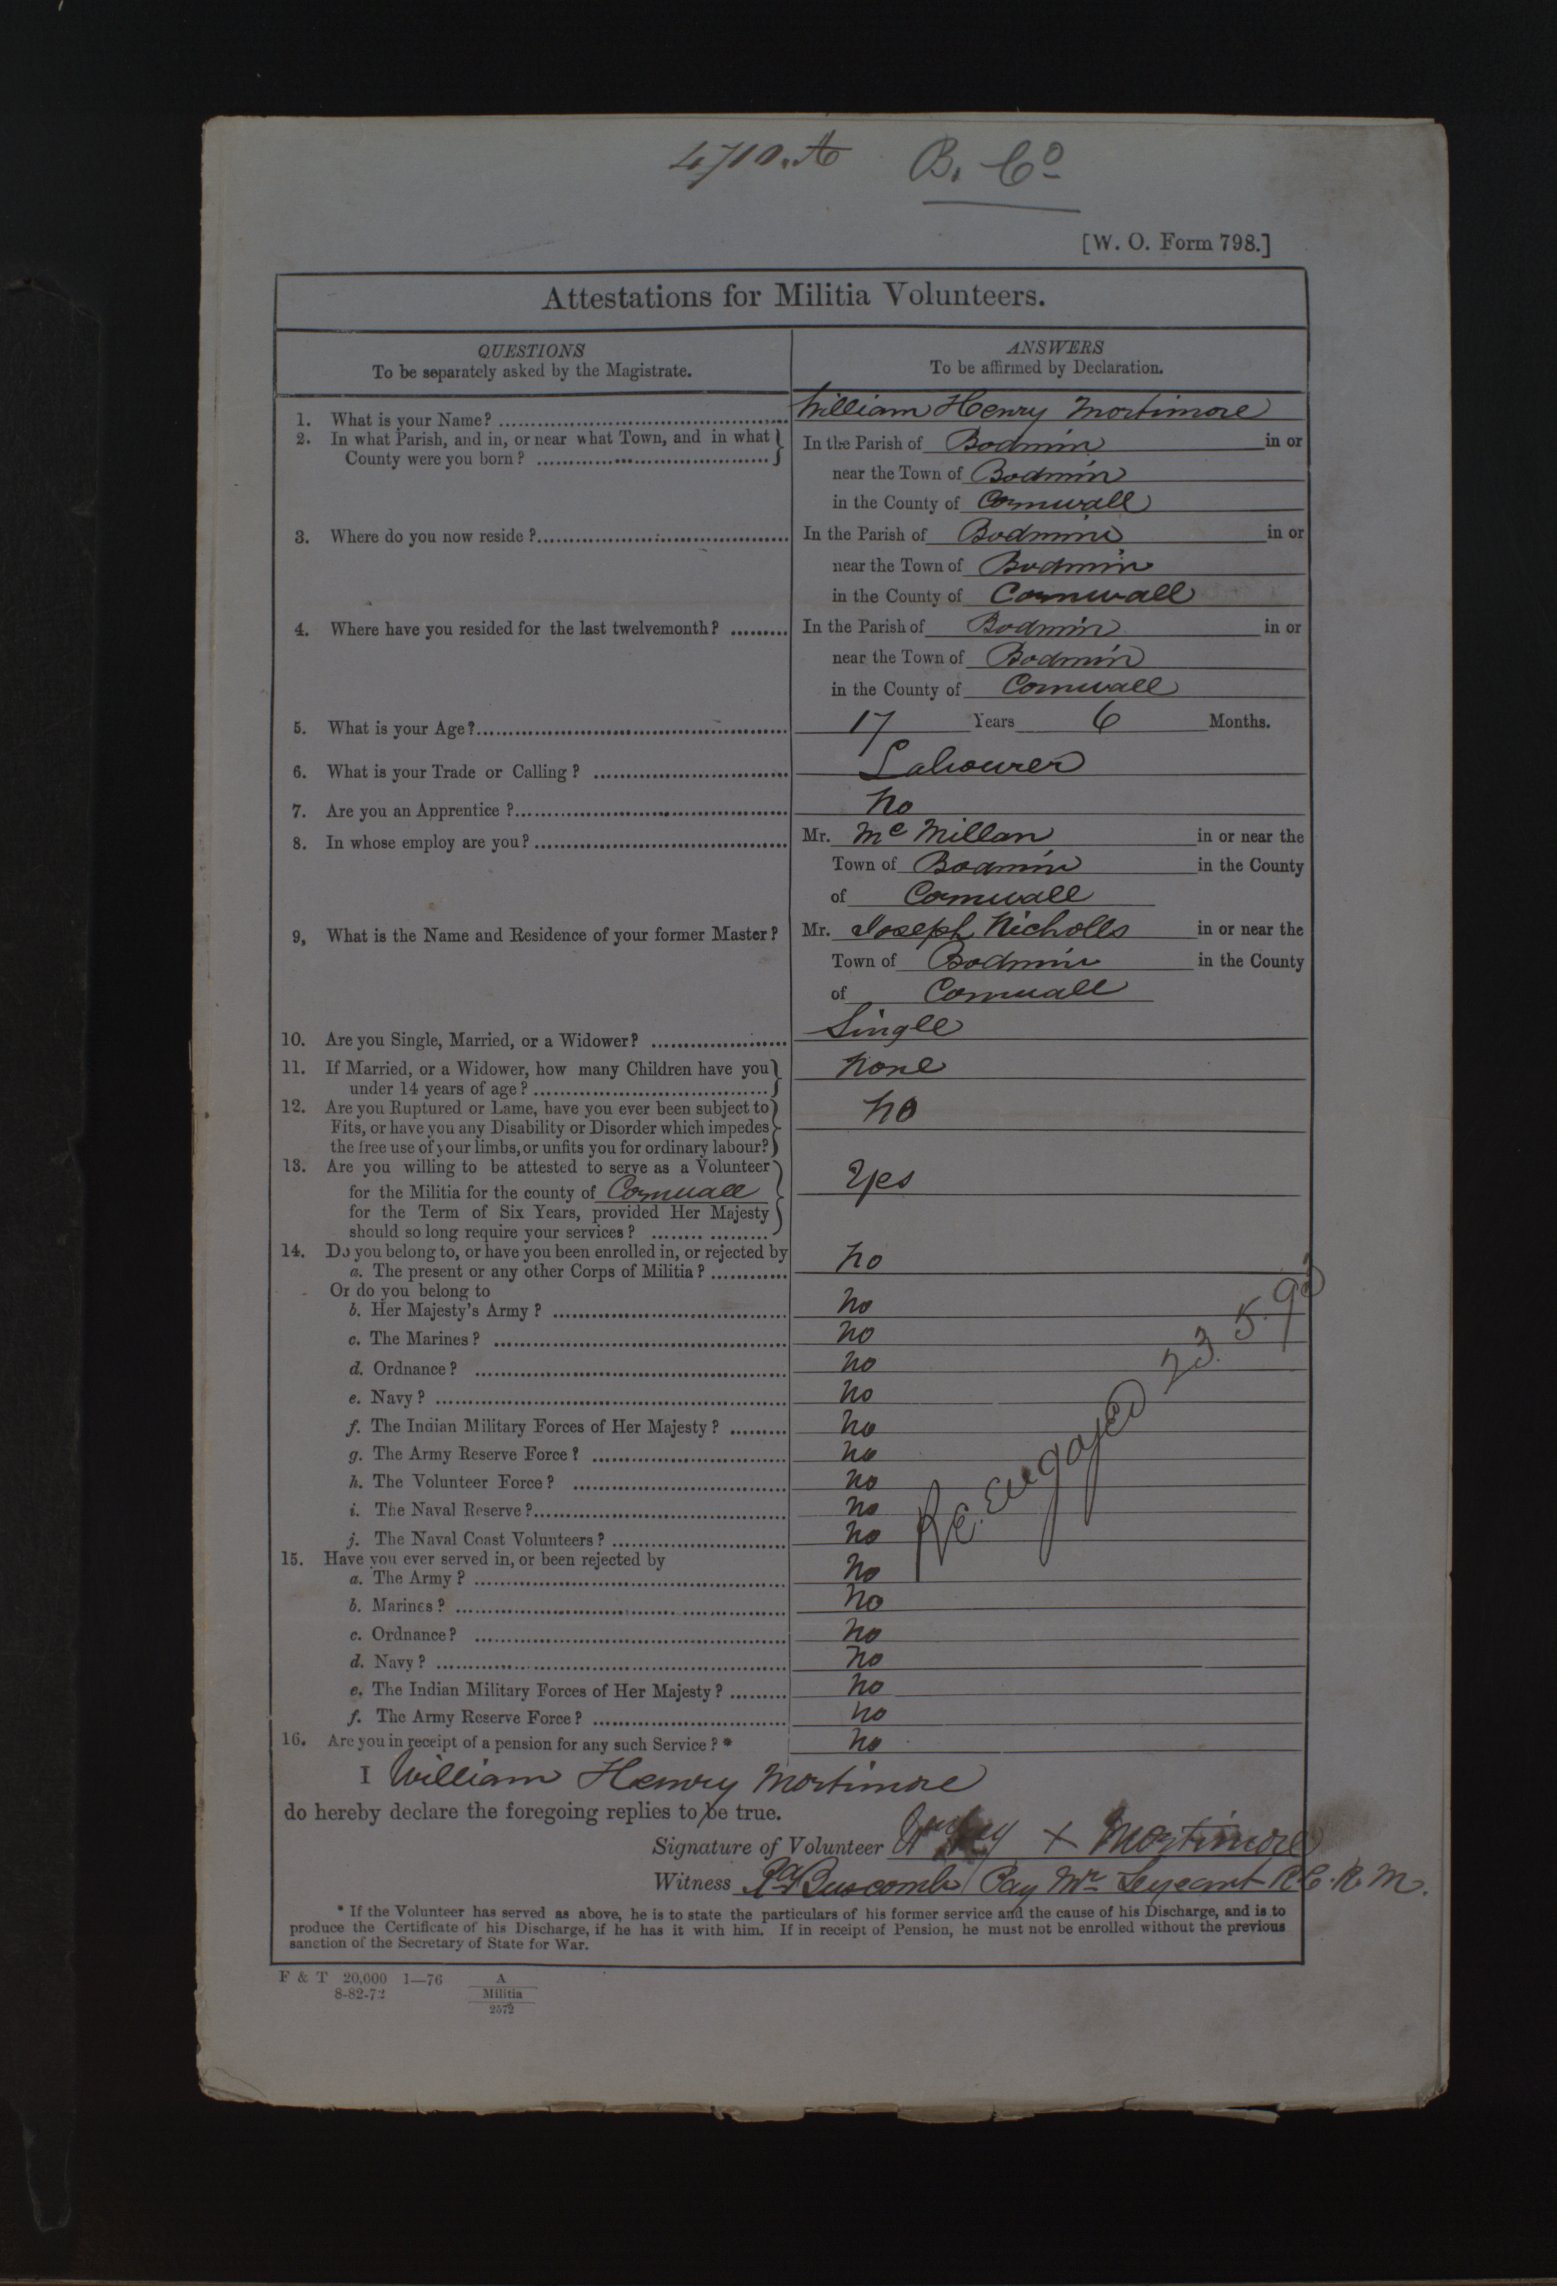 4710. A B. Co
[W. O. Form 798.]
Attestations for Militia Volunteers.
QUESTIONS
To be separately asked by the Magistrate.
ANSWERS
To be affirmed by Declaration.
1. What is your Name? William Henry Mortimore
2. In what Parish, and in, or near what Town, and in what County were you born? In the Parish of Bodmin in or
near the Town of Bodmin
in the County of Cornwall
3. Where do you now reside? In the Parish of Bodmin in or
near the Town of Bodmin
in the County of Cornwall
4. Where have you resided for the last twelvemonth? In the Parish of Bodmin in or
near the Town of Bodmin
in the County of Cornwall
5. What is your Age? 17 Years 6 Months.
6. What is your Trade or Calling? Labourer
7. Are you an Apprentice? No
8. In whose employ are you? Mr. Mc Millan in or near the
Town of Bodmin in the County
of Cornwall
9, What is the Name and Residence of your former Master? Mr. Joseph Nicholls in or near the
Town of Bodmin in the County
of Cornwall
10. Are you Single, Married, or a Widower? Single
11. If Married, or a Widower, how many Children have you
under 14 years of age? None
12. Are you Ruptured or Lame, have you ever been subject to
Fits, or have you any Disability or Disorder which impedes
the free use of your limbs, or unfits you for ordinary labour? No
13. Are you willing to be attested to serve as a Volunteer
for the Militia for the county of Cornwall
for the Term of Six Years, provided Her Majesty
should so long require your services? Yes
14. Do you belong to, or have you been enrolled in, or rejected by
a. The present or any other Corps of Militia? No
Or do you belong to
b. Her Majesty's Army? No
c. The Marines? No
d. Ordnance? No
e. Navy? No
f. The Indian Military Forces of Her Majesty? No
g. The Army Reserve Force? No
h. The Volunteer Force? No
i. The Naval Reserve? No
j. The Naval Coast Volunteers? No
Re. Engaged 23. 5. 93
15. Have you ever served in, or been rejected by
a. The Army? No
b. Marines? No
c. Ordnance? No
d. Navy? No
e. The Indian Military Forces of Her Majesty? No
f. The Army Reserve Force? No
16. Are you in receipt of a pension for any such Service?* No
I William Henry Mortimore
do hereby declare the foregoing replies to be true.
Signature of Volunteer X Mortimore
Witness Buscomb Pay Mr Serjeant R.C.R.M.
* If the Volunteer has served as above, he is to state the particulars of his former service and the cause of his Discharge, and is to
produce the Certificate of his Discharge, if he has it with him. If in receipt of Pension, he must not be enrolled without the previous
sanction of the Secretary of State for War.
F & T 20,000 1—76 A
8-82-72 Militia
2572